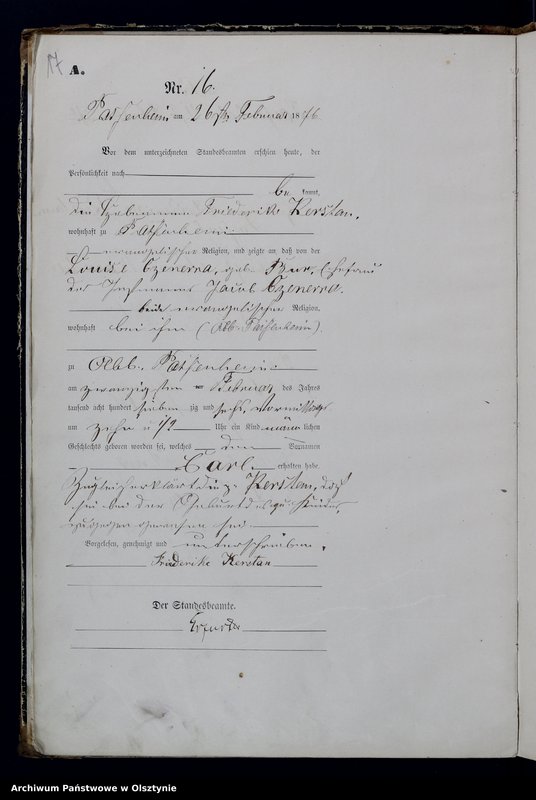 17
A.
Nr. 16.
Passenheim am 26ten Februar 1876
Vor dem unterzeichneten Standesbeamten erschien heute, der
Persönlichkeit nach
be kannt,
die Hebamme Friederike Kerstan,
wohnhaft zu Passenheim
evangelischer Religion, und zeigte an daß von der
Louise Czenerra, geb. Bur, Ehefrau
des Jacob Czenerra.
beide evangelischer Religion,
wohnhaft bei ihm (Abb. Passenheim).
zu Abb. Passenheim
am zwanzigsten Februar des Jahres
tausend acht hundert sieben zig und sechs, Vormittags
um zehn u 1/2 Uhr ein Kind männ lichen
Geschlechts geboren worden sei, welches den Vornamen
Carl erhalten habe.
Zugleich erklärt die p. Kerstan, daß
sie bei der Geburt des qu. Kindes
zugegen gewesen sei.
Vorgelesen, genehmigt und unterschrieben.
Friederike Kerstan
Der Standesbeamte.
Archiwum Państwowe w Olsztynie